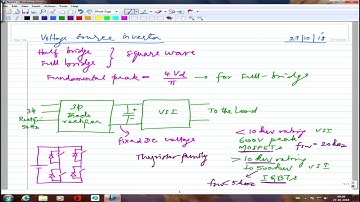 Voltage Source Inverter
25/10/18
Half bridge
Full bridge
} Square wave
Fundamental peak = 4Vd/π → for Full-bridge
3ϕ
50Hz
3ϕ
Diode
rectifier
+
VSI
To the Load
Fixed DC voltage
Thyristor family
< 10 kW rating VSI
600V peak
MOSFETs
fsw ~ 20kHz
> 10 kW rating
to 500 kW VSI
IGBTs
fsw < 5kHz